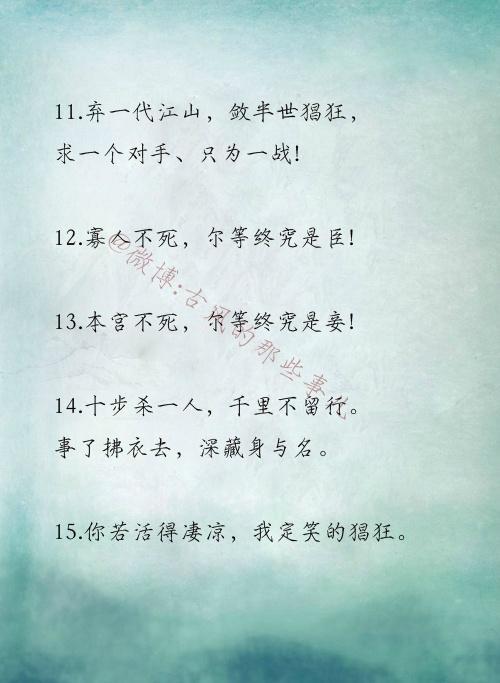 11.弃一代江山，敛半世猖狂，
求一个对手、只为一战!
12.寡人不死，尔等终究是臣!
13.本宫不死，尔等终究是妾!
14.十步杀一人，千里不留行。
事了拂衣去，深藏身与名。
15.你若活得凄凉，我定笑的猖狂。
@微博:古风的那些事儿